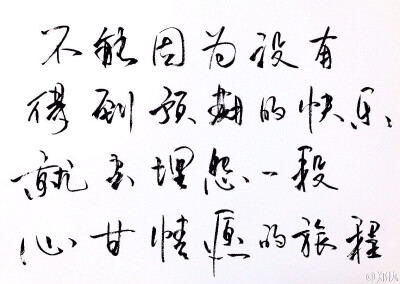 不能因为没有
得到预期的快乐，
就去埋怨一段
心甘情愿的旅程